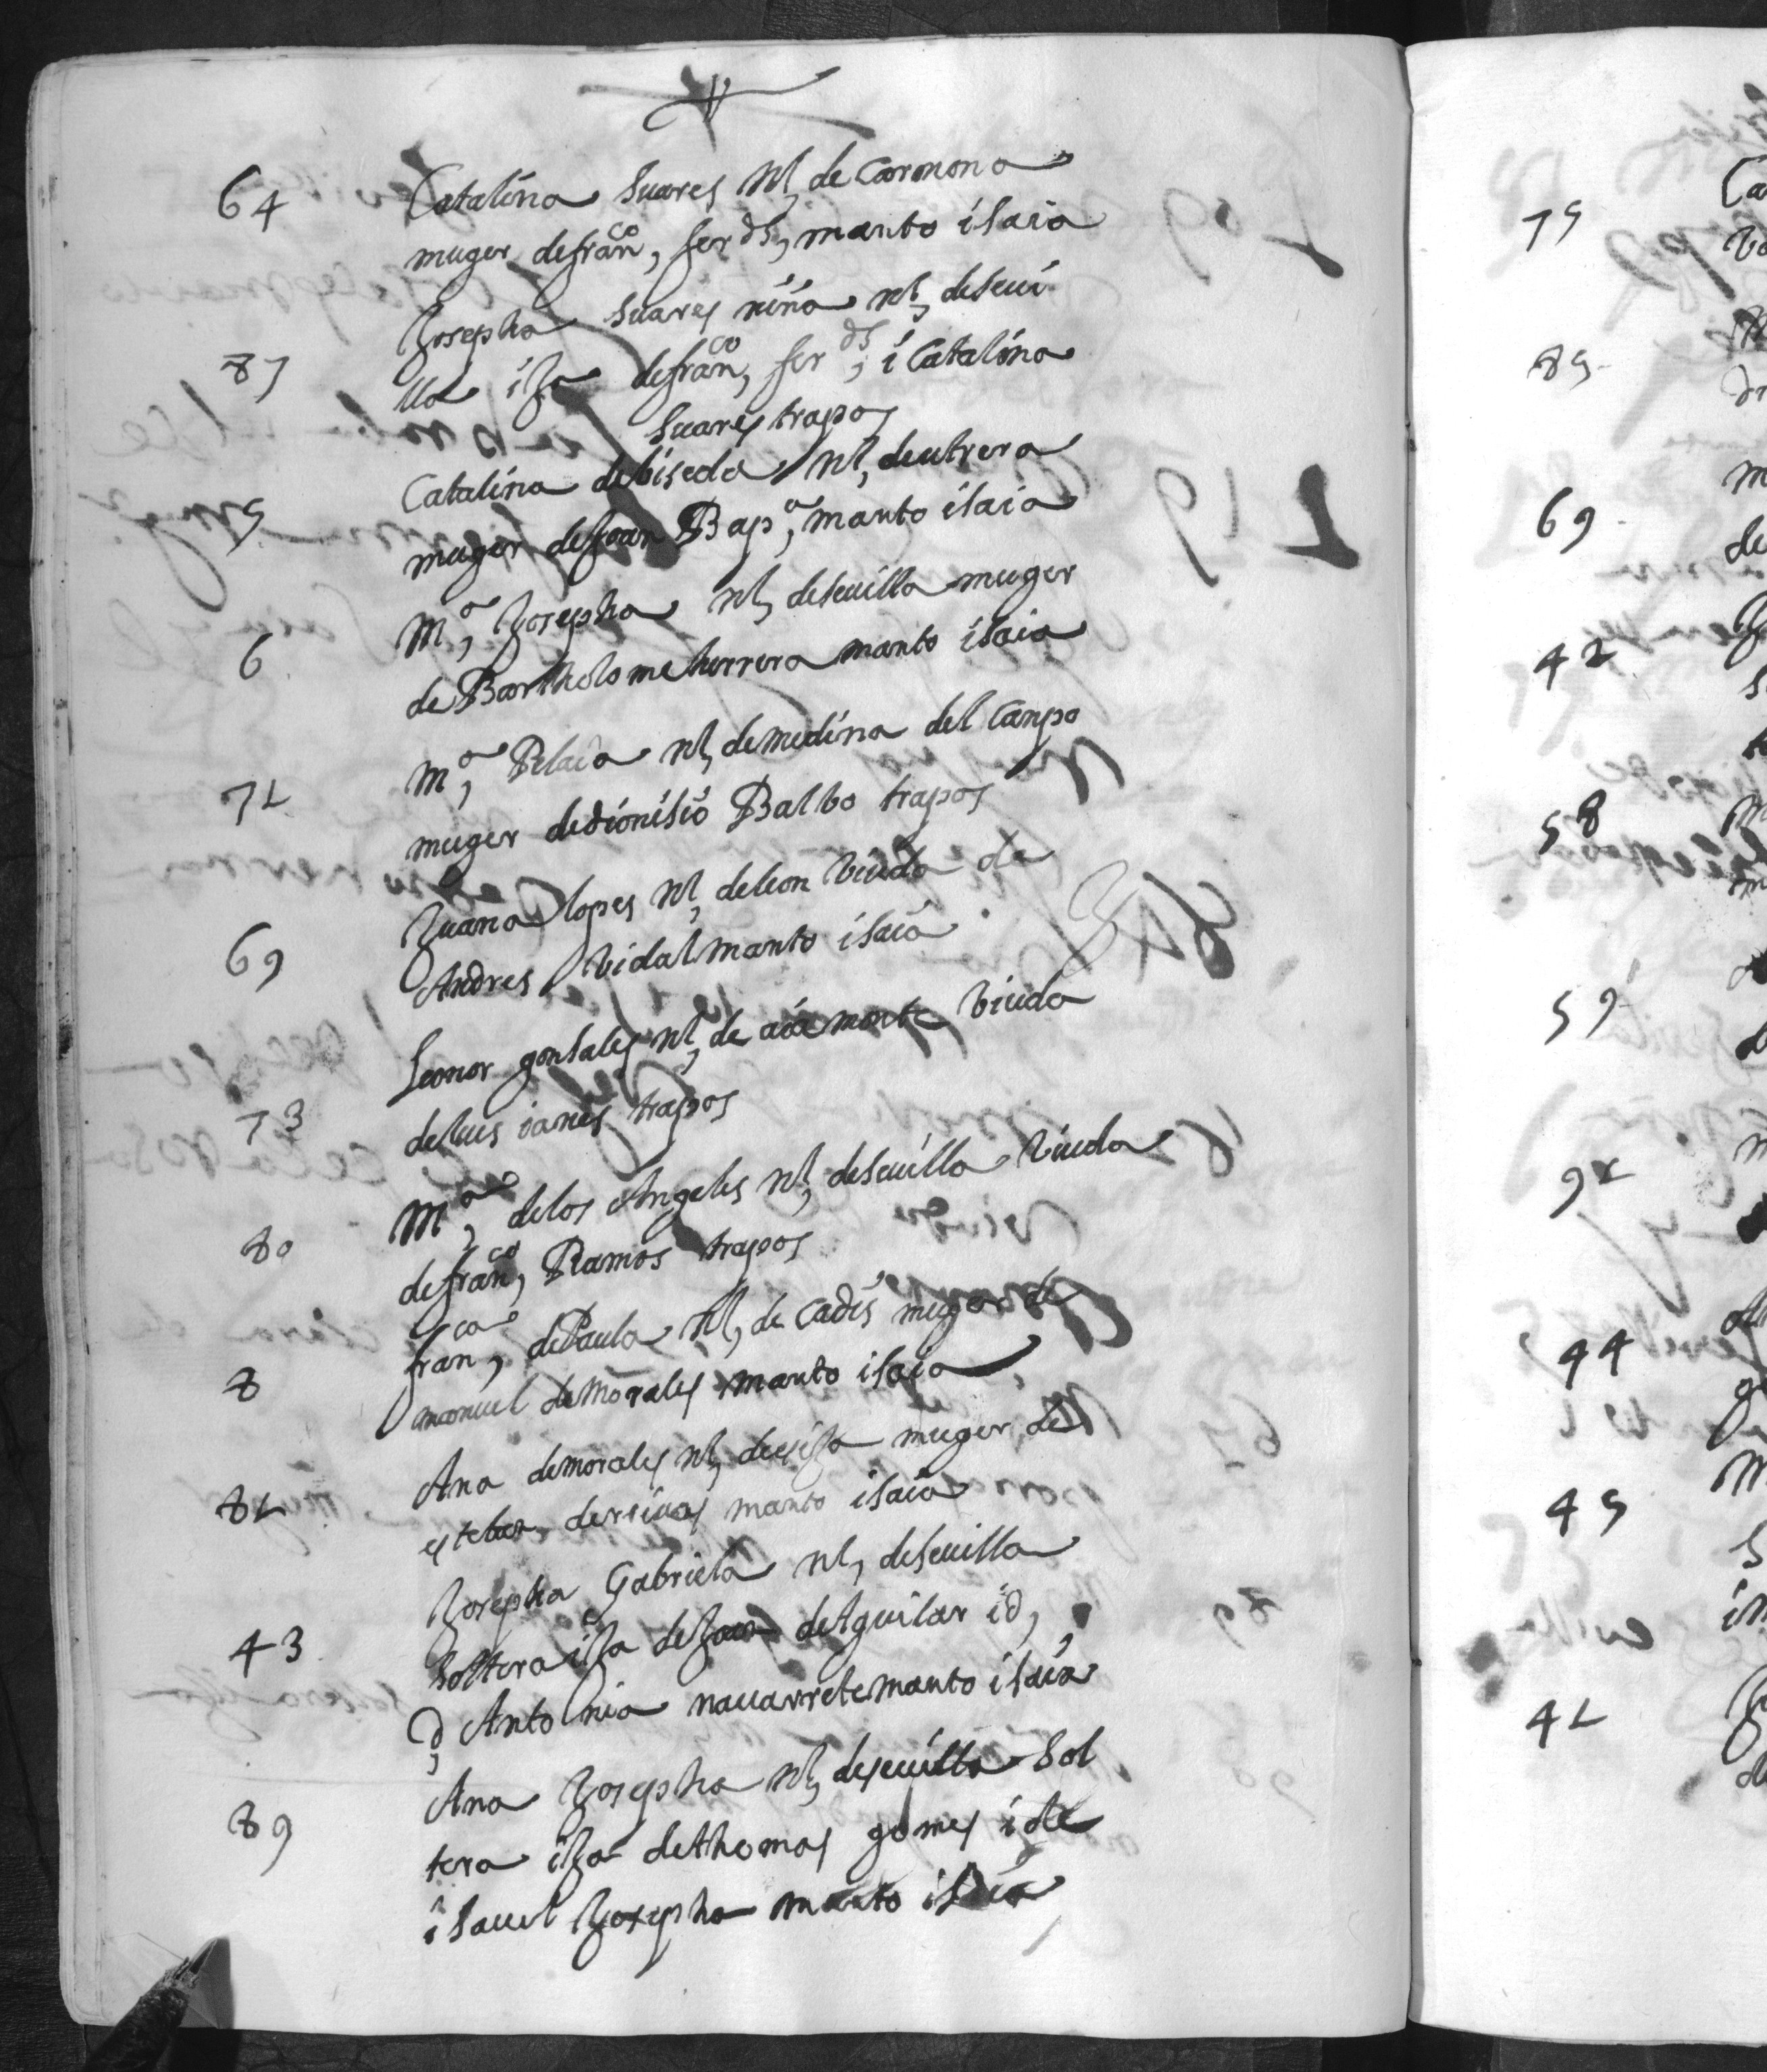 64 Catalina Suares nl, de Carmona
muger defran^co, fer^ds, manto isaia
Josepha Suares niña nl, deseui
87 lla ija defran^co, fer^ds, i Catalina
Suares trapos
Catalina debiseda nl, deutrera
5 muger dejoan Bap^a, manto isaia
M^a, Josepha nl, deseuilla muger
6 de Bartholome herrera manto isaia
M^a, Pelaia nl, demedina del Canpo
72 muger dedionisio Balbo trapos
Juana lopes nl, deleon biuda de
69 Andres bidal manto isaia
Leonor gonsales nl, de aiamonte biuda
73 deluis ianes trapos
M^a, delos Angeles nl, deseuilla biuda
80 defran^co, Ramos trapos
fran^ca, dePaula nl, de Cadis muger de
8 manuel demorales manto isaia
Ana demorales nl, deesija muger de
82 esteban derriuas manto isaia
Josepha Gabriela nl, deseuilla
43 soltera ija dejoan deAguilar id,
d, Antonia nauarrete manto isaia
Ana Josepha nl, deseuilla sol
89 tera ija dethomas gomes i de
isauel Josepha manto isaia
75 Ca
85
69 m
de
42
58 m
59
92 m
44
45
42